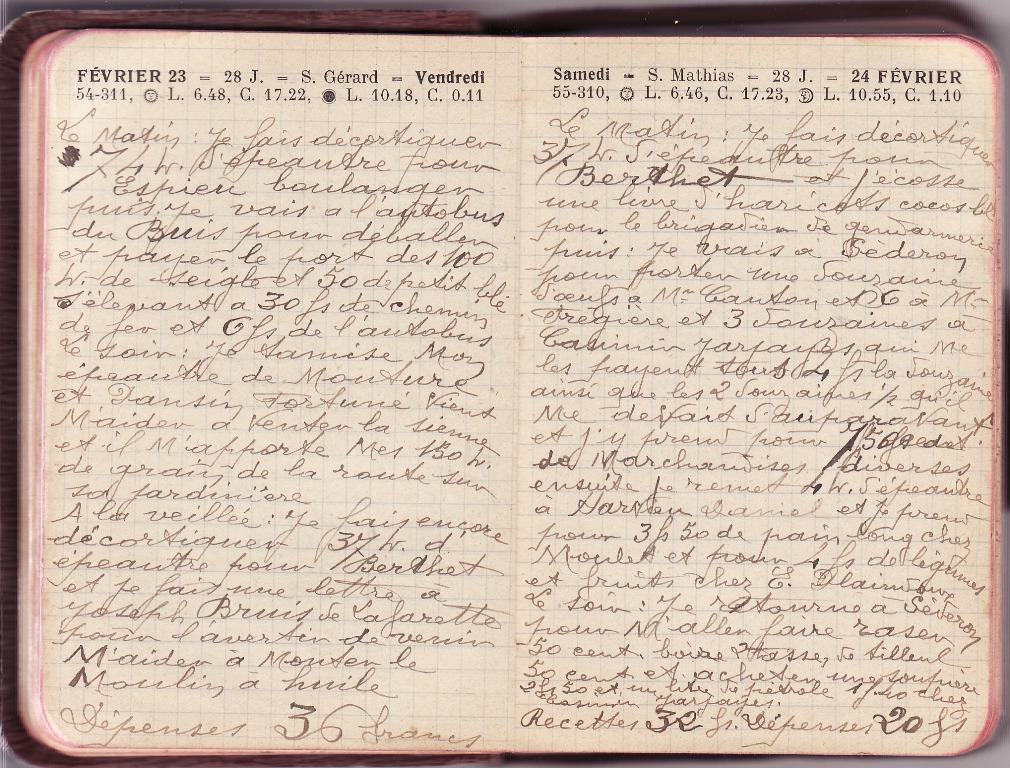 FÉVRIER 23 = 28 J. = S. Gérard = Vendredi
54-311, L. 6.48, C. 17.22, L. 10.18, C. 0.11
Le Matin : Je fais décortiquer
K. d'épeautre pour
Espieu boulanger
puis je vais a l'autobus
du Buis pour déballer
et payer le port des 100
K. de seigle et 50 de petit blé
s'élevant a 30 fs de chemin
de fer et 6 fs de l'autobus
Le soir : Je tamise Mon
épeautre de Mouture
et Dansin Fortuné vient
M'aider a venter la sienne
et il M'apporte Mes 150 K.
de grain de la route sur
sa jardinière
A la veillée : Je fais encore
décortiquer 37 K. d'
épeautre pour Berthet
et je fais une lettre a
Joseph Bruis de Lafarette
pour l'avertir de venir
M'aider à Monter le
Moulin a huile
Dépenses 36 francs
Samedi - S. Mathias = 28 J. = 24 FÉVRIER
55-310, L. 6.46, C. 17.23, L. 10.55, C. 1.10
Le Matin : Je fais décortiquer
37 K. d'épeautre pour
Berthet et j'écosse
une livre d'haricots cocos
pour le brigadier de gendarmerie
puis : Je vais à Séderon
pour porter une douzaine
d'œufs a Mr et 6 a Mr
et 3 douzaines a
Casimir Jarjayes qui Me
les payent tous 4 fs la douzaine
ainsi que les 2 douzaines 1/2 qu'il
Me devait d'auparavant
et j'y prend pour
de Marchandises diverses
ensuite je remet 4 K. d'épeautre
à Daniel et je prend
pour 3 fs 50 de pain long chez
Moulet et pour 4 fs de légumes
et fruits chez E. Blain
Le soir : Je retourne a Séderon
pour M'aller faire raser
50 cent. boire 2 tasses de tilleul
50 cent et acheter une soupière
2 fs 50 et un litre de pétrole 1 f 40 chez
Casimir Jarjayes.
Recettes 32 fs. Dépenses 20 fs